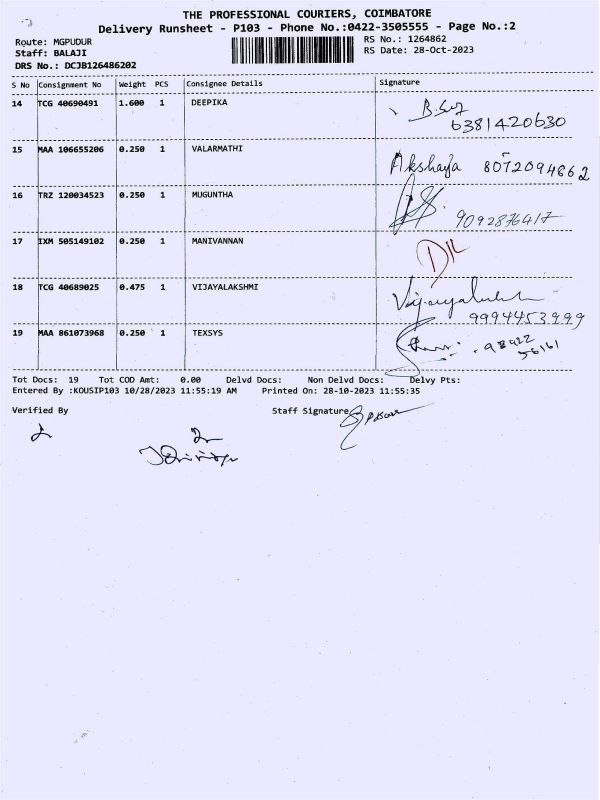 THE PROFESSIONAL COURIERS, COIMBATORE
Delivery Runsheet - P103 - Phone No.:0422-3505555 - Page No.:2
Route: MGPUDUR
RS No.: 1264862
Staff: BALAJI
RS Date: 28-Oct-2023
DRS No.: DCJB126486202
S No Consignment No Weight PCS Consignee Details Signature
14 TCG 40690491 1.600 1 DEEPIKA
6381420630
15 MAA 106655206 0.250 1 VALARMATHI Akshaya 8072094862
16 TRZ 120034523 0.250 1 MUGUNTHA
9092876417
17 IXM 505149102 0.250 1 MANIVANNAN
18 TCG 40689025 0.475 1 VIJAYALAKSHMI Vijayalakshmi
9994453999
19 MAA 861073968 0.250 1 TEXSYS 98922
56161
Tot Docs: 19 Tot COD Amt: 0.00 Delvd Docs: Non Delvd Docs: Delvy Pts:
Entered By :KOUSIP103 10/28/2023 11:55:19 AM Printed On: 28-10-2023 11:55:35
Verified By Staff Signature